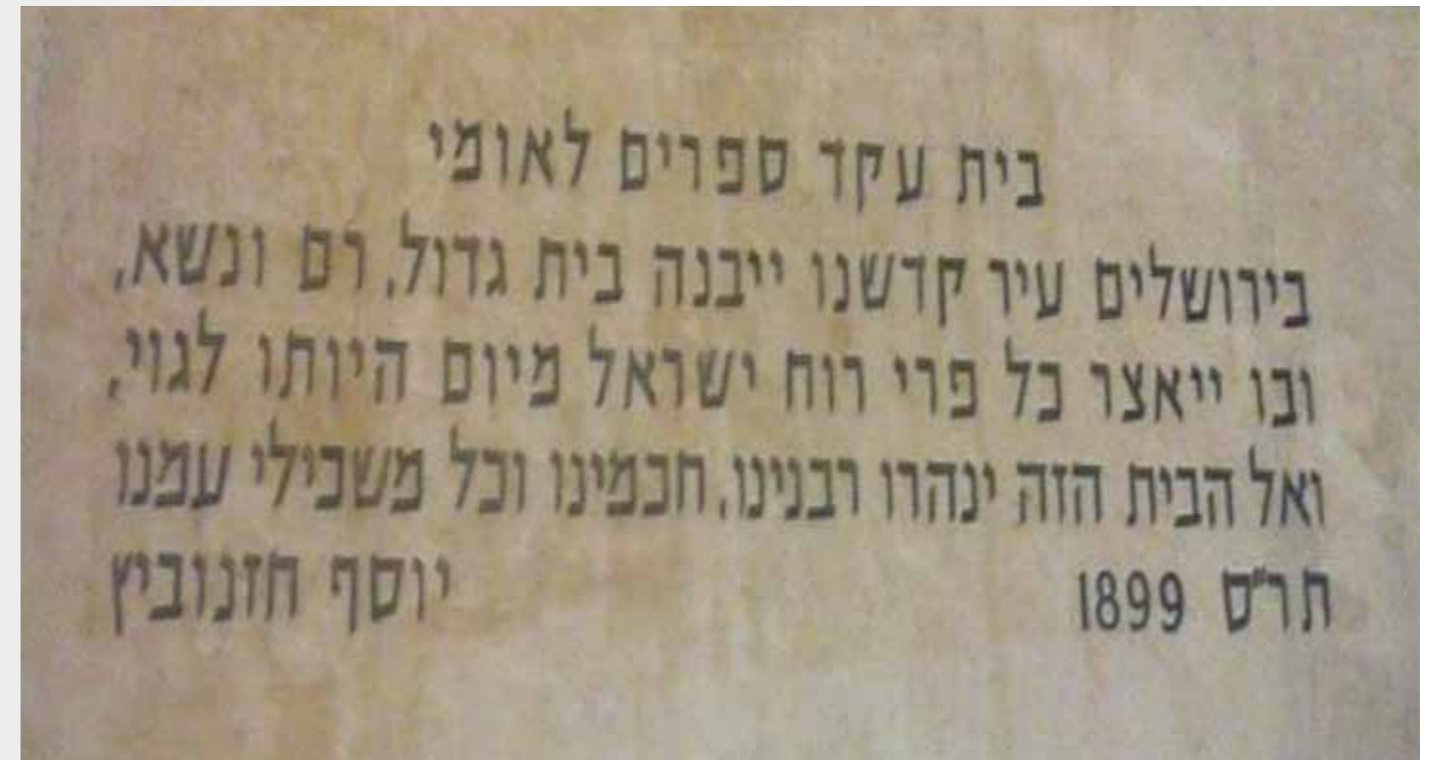 בית עקד ספרים לאומי
בירושלים עיר קדשנו ייבנה בית גדול, רם ונשא,
ובו ייאצר כל פרי רוח ישראל מיום היותו לגוי,
ואל הבית הזה ינהרו רבנינו, חכמינו וכל משכילי עמנו
תר"ס 1899 יוסף חזנוביץ